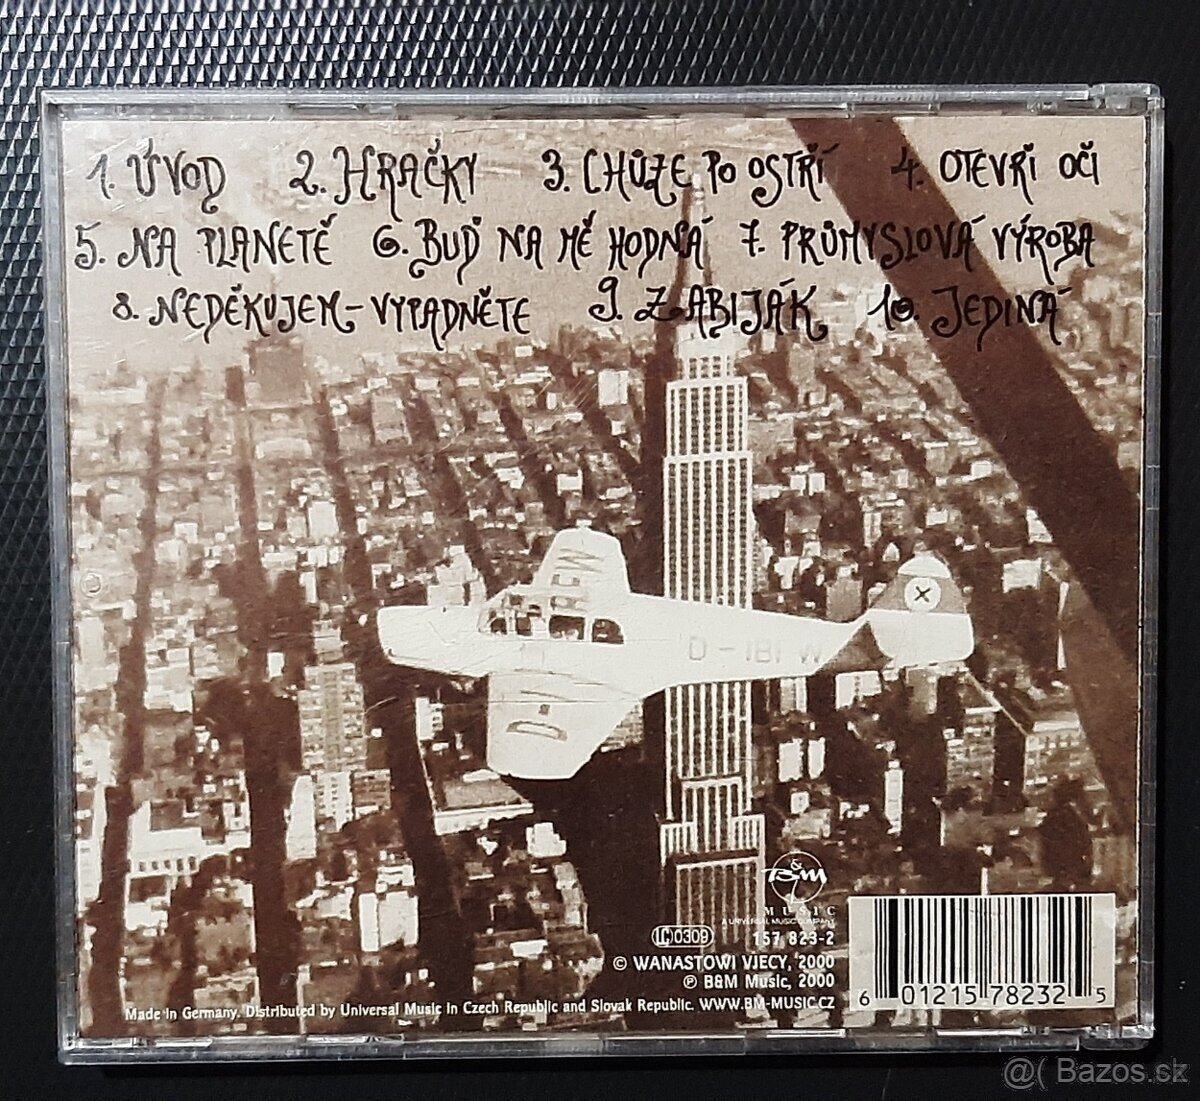 1. ÚVOD 2. HRAČKY 3. CHŮZE PO OSTŘÍ 4. OTEVŘI OČI
5. NA PLANETĚ 6. BUĎ NA MĚ HODNÁ 7. PRŮMYSLOVÁ VÝROBA
8. NEDĚKUJEM-VYPADNĚTE 9. ZABIJÁK 10. JEDINÁ
D-IBFW
B&M
MUSIC
A UNIVERSAL MUSIC COMPANY
LC 0309 157 823-2
© WANASTOWI VJECY, 2000
℗ B&M Music, 2000
Made in Germany. Distributed by Universal Music in Czech Republic and Slovak Republic. WWW.BM-MUSIC.CZ
6 01215 78232 5
@( Bazos.sk